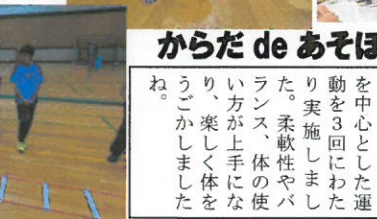 からだ de あそぼ
を中心とした運
動を3回にわた
り実施しまし
た。柔軟性やバ
ランス、体の使
い方が上手にな
り、楽しく体を
うごかしました
ね。